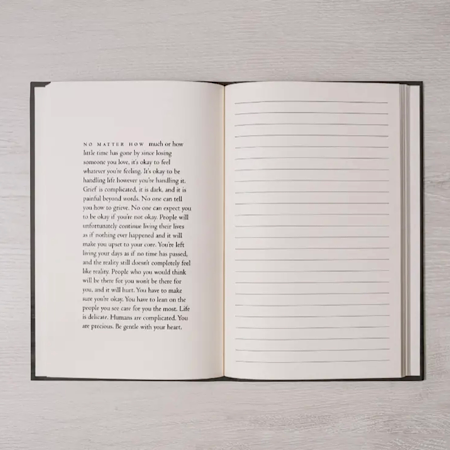 NO MATTER HOW much or how
little time has gone by since losing
someone you love, it's okay to feel
whatever you're feeling. It's okay to be
handling life however you're handling it.
Grief is complicated, it is dark, and it is
painful beyond words. No one can tell
you how to grieve. No one can expect you
to be okay if you're not okay. People will
unfortunately continue living their lives
as if nothing ever happened and it will
make you upset to your core. You're left
living your days as if no time has passed,
and the reality still doesn't completely feel
like reality. People who you would think
will be there for you won't be there for
you, and it will hurt. You have to make
sure you're okay. You have to lean on the
people you see care for you the most. Life
is delicate. Humans are complicated. You
are precious. Be gentle with your heart.